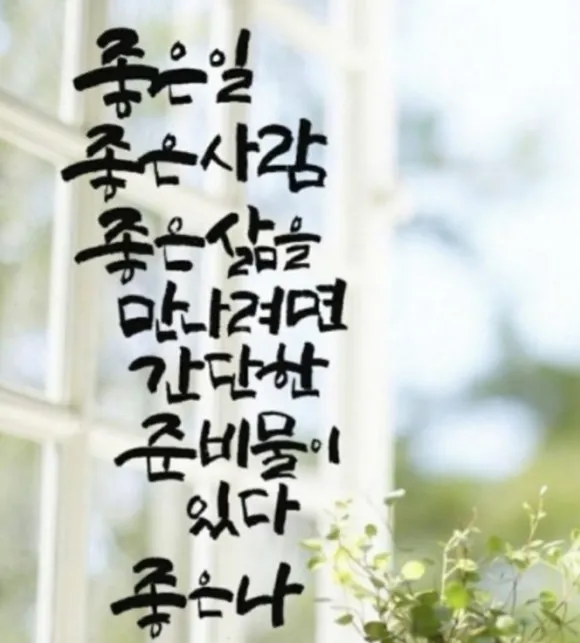 좋은일
좋은사람
좋은삶을
만나려면
간단한
준비물이
있다
좋은나